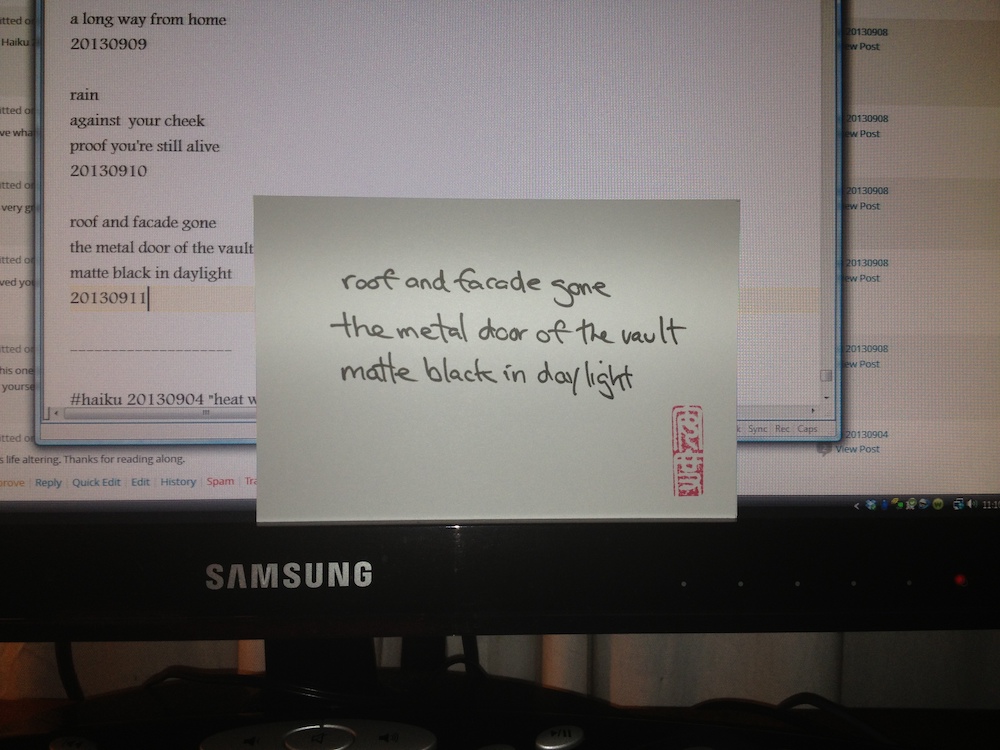 a long way from home
20130909
rain
against your cheek
proof you're still alive
20130910
roof and facade gone
the metal door of the vault
matte black in daylight
20130911
#haiku 20130904 "heat w
Sync Rec Caps
roof and facade gone
the metal door of the vault
matte black in daylight
itted or
Haiku
itted or
ve wha
itted or
very gr
itted or
ved you
itted or
his one
yourse
itted or
s life altering. Thanks for reading along.
prove | Reply | Quick Edit | Edit | History | Spam | Tra
20130908
ew Post
20130908
ew Post
20130908
ew Post
20130908
ew Post
20130908
ew Post
20130904
View Post
SAMSUNG